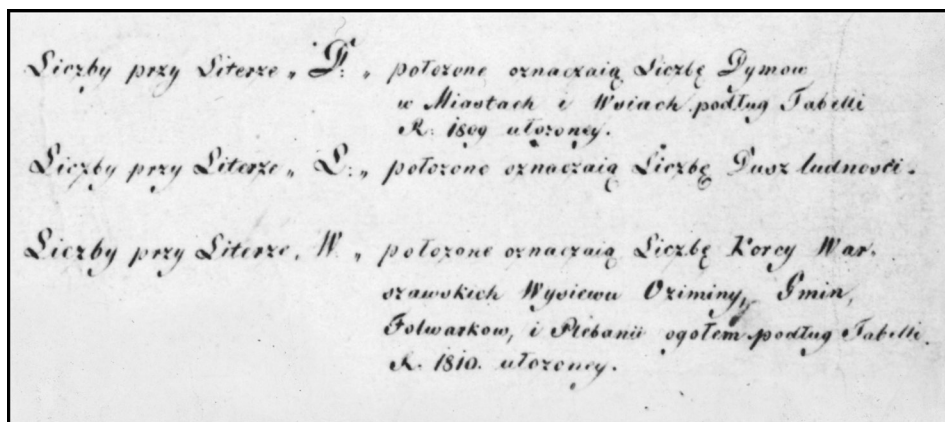 Liczby przy Literze „ D: „ położone oznaczaią Liczbę Dymow
w Miastach i Wsiach podług Tabelli
R. 1809 ułożoney.
Liczby przy Literze „ L: „ położone oznaczaią Liczbę Dusz ludności.
Liczby przy Literze „ W. „ położone oznaczaią Liczbę Korcy War-
szawskich Wysiewu Oziminy, Gmin,
Folwarkow, i Plebanii ogołem podług Tabelli.
R. 1810. ułożoney.